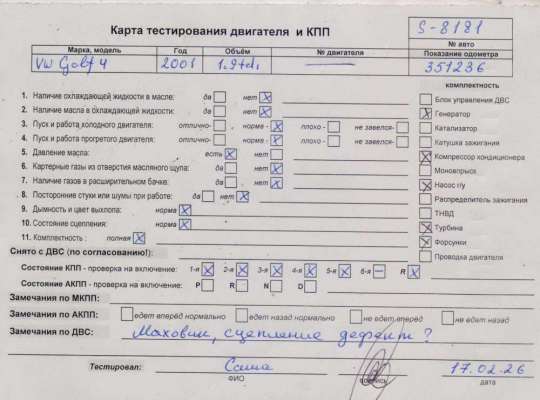 Карта тестирования двигателя и КПП
S-8181
№ авто
Марка, модель Год Объём № двигателя Показание одометра
VW Golf 4 2001 1.9tdi 351236
комплектность
1. Наличие охлаждающей жидкости в масле: да нет X
2. Наличие масла в охлаждающей жидкости: да нет X
3. Пуск и работа холодного двигателя: отлично- норма - X плохо - не завелся-
4. Пуск и работа прогретого двигателя: отлично- норма - X плохо - не завелся-
5. Давление масла: есть X нет
6. Картерные газы из отверстия масляного щупа: да нет X
7. Наличие газов в расширительном бачке: да нет X
8. Посторонние стуки или шумы при работе: да нет X
9. Дымность и цвет выхлопа: норма X
10. Состояние сцепления: норма X
11. Комплектность : полная X
Блок управления ДВС
X Генератор
Катализатор
Катушка зажигания
X Компрессор кондиционера
Моновпрыск
X Насос г/у
Распределитель зажигания
ТНВД
X Турбина
X Форсунки
Проводка двигателя
Снято с ДВС (по согласованию!):
Состояние КПП - проверка на включение: 1-я X 2-я X 3-я X 4-я X 5-я X 6-я – R X
Состояние АКПП - проверка на включение: P R N D
Замечания по МКПП:
Замечания по АКПП: едет вперёд нормально едет назад нормально не едет вперед не едет назад
Замечания по ДВС: Маховик, сцепление дефект ?
Тестировал: 17.02.26
ФИО подпись дата